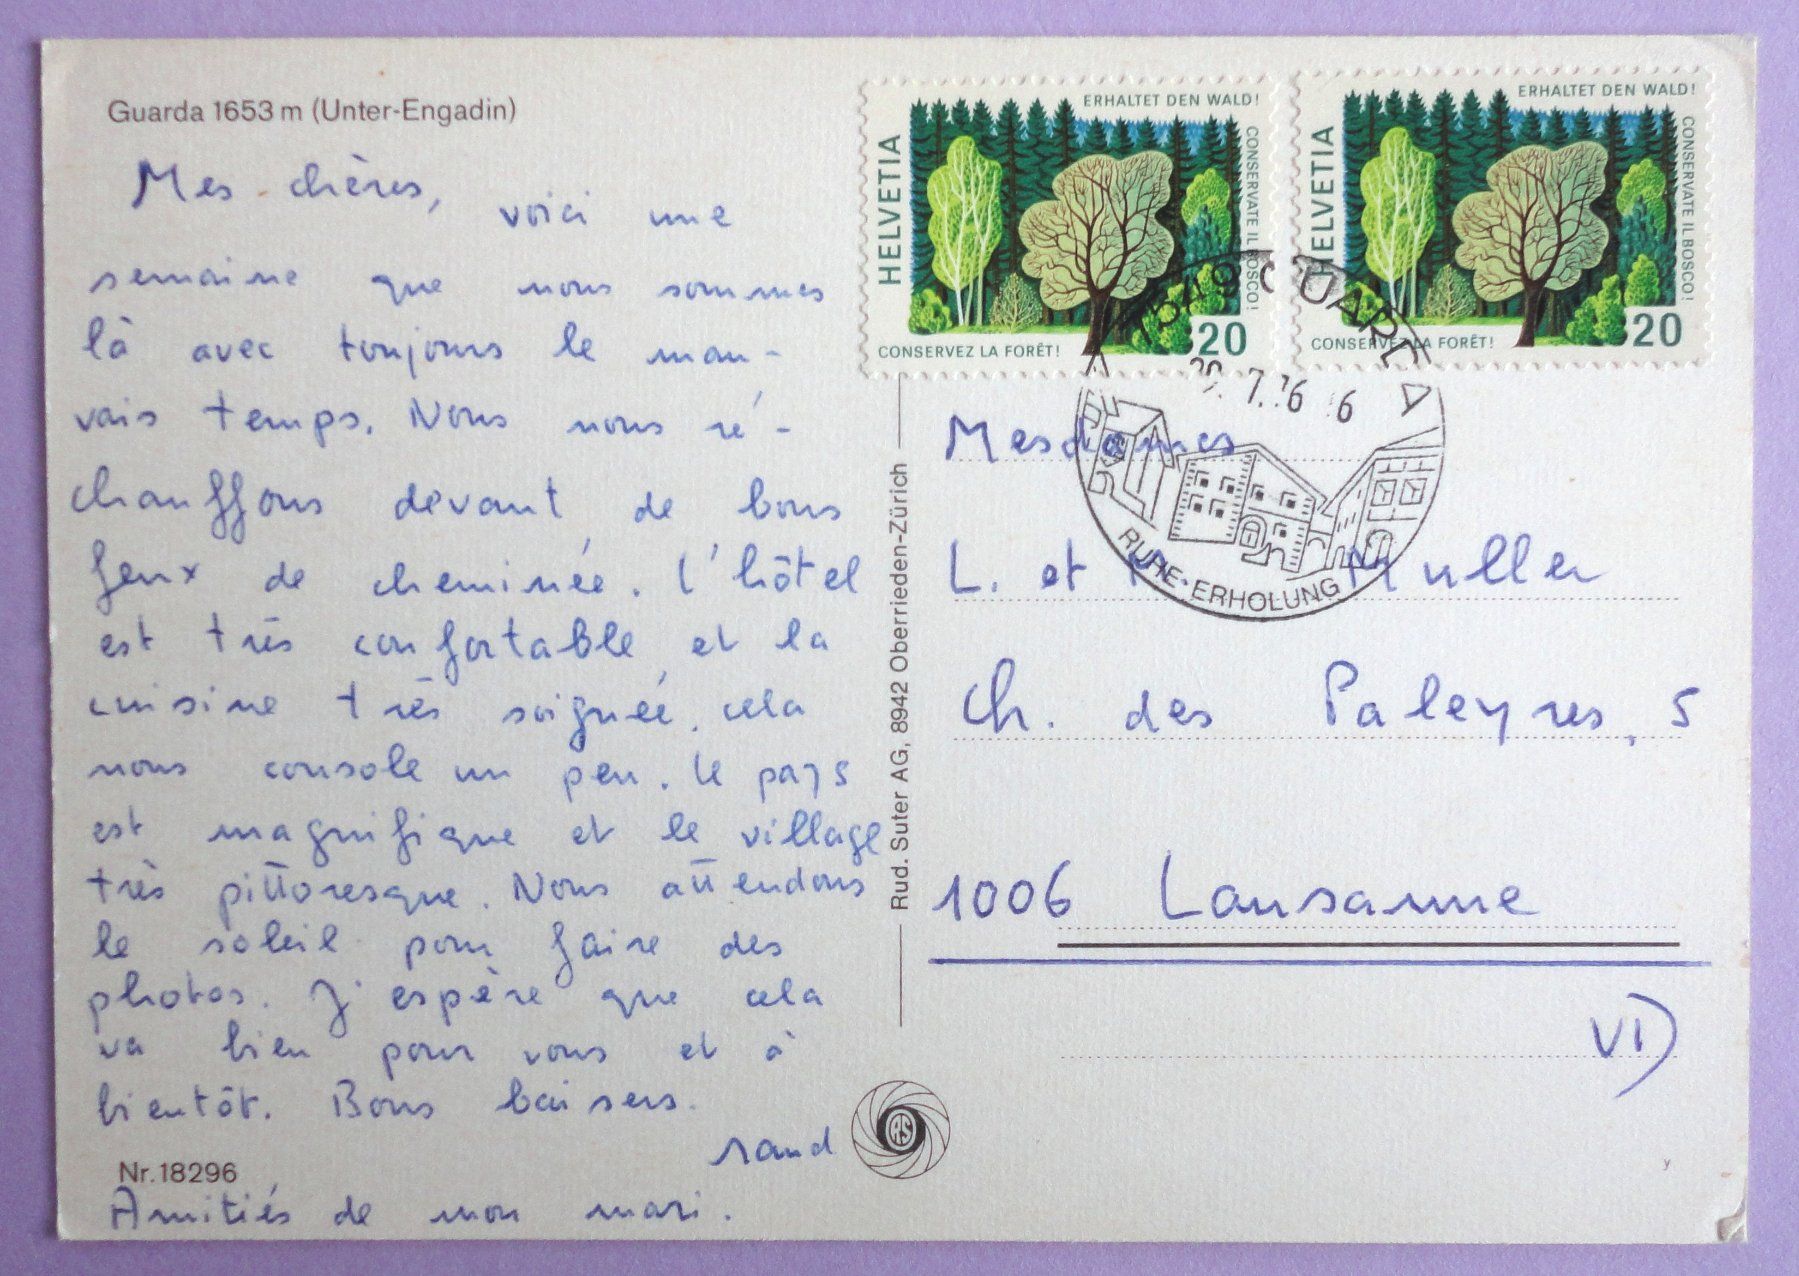 Guarda 1653 m (Unter-Engadin)
Mes chères, voici une
semaine que nous sommes
là avec toujours le mau-
vais temps. Nous nous ré-
chauffons devant de bons
feux de cheminée. L'hôtel
est très confortable et la
cuisine très soignée, cela
nous console un peu. Le pays
est magnifique et le village
très pittoresque. Nous attendons
le soleil pour faire des
photos. J'espère que cela
va bien pour vous et à
bientôt. Bons baisers.
Nr. 18296
Amitiés de mon mari.
Rud. Suter AG, 8942 Oberrieden-Zürich
RS
HELVETIA
ERHALTET DEN WALD!
CONSERVATE IL BOSCO!
CONSERVEZ LA FORÊT!
20
HELVETIA
ERHALTET DEN WALD!
CONSERVATE IL BOSCO!
CONSERVEZ LA FORÊT!
20
7549 GUARDA
7.76
RUHE·ERHOLUNG
Mesdames
L. et Muller
Ch. des Paleyres, 5
1006 Lausanne
VD
y